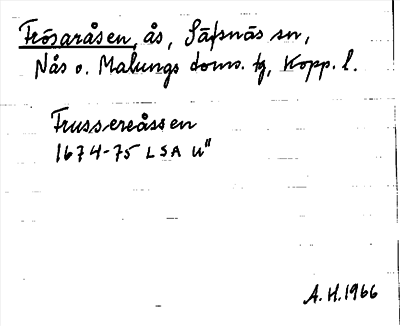 Frösaråsen, ås, Säfsnäs sn,
Nås o. Malungs doms. tg, Kopp. l.
Frussereåssen
1674-75 LSA U"
A.H. 1966